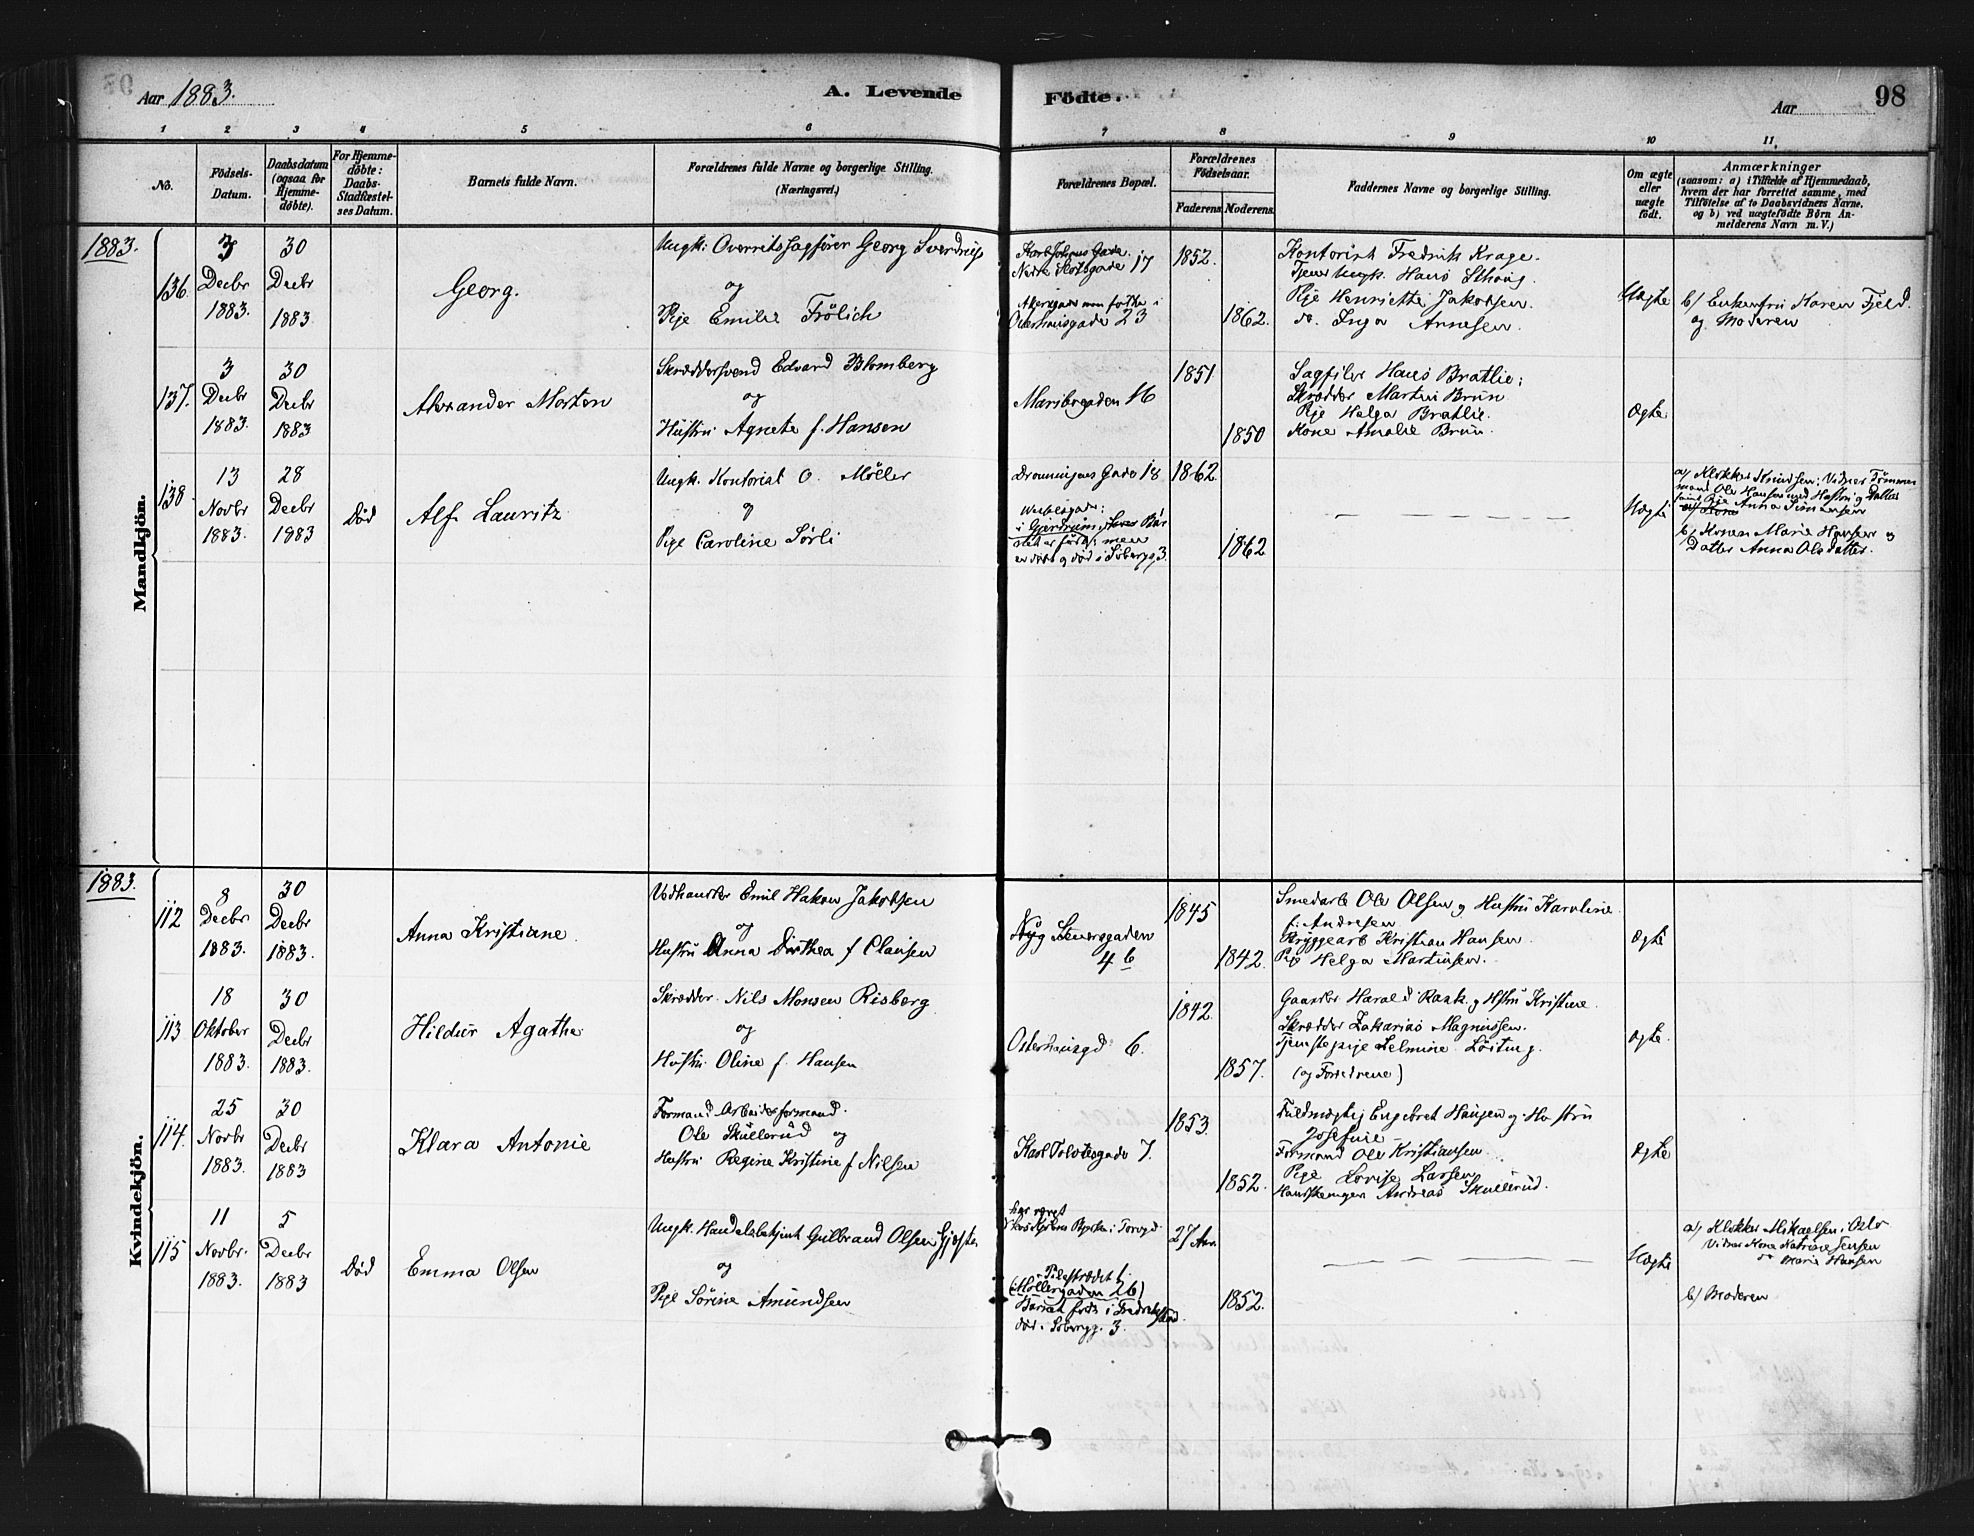 Aar 1883.
A. Levende Födte.
Aar
98
1 2 3 4 5 6 7 8 9 10 11.
No.
Födsels-Datum.
Daabsdatum (ogsaa for Hjemme-döbte).
For Hjemme-döbte: Daabs-Stadfæstel-ses Datum.
Barnets fulde Navn.
Forældrenes fulde Navne og borgerlige Stilling.
(Næringsvei.)
Forældrenes Bopæl.
Forældrenes Födselsaar.
Faderens.
Moderens.
Faddernes Navne og borgerlige Stilling.
Om ægte eller uægte födt.
Anmærkninger
(saasom: a) i Tilfælde af Hjemmedaab,
hvem der har forrettet samme, med
Tilföielse af to Daabsvidners Navne.
og b) ved uægtefödte Börn An-
melderens Navn m. V.)
Mandkjön.
1883.
136.
3 Decbr 1883.
30 Decbr 1883
Georg.
Ungk: Overretssagfører Georg Sverdrup
og
Pige Emilie Frölich
Karl Johans Gade.
Nedre Slotsgade 17
Osterhausgade 23
1852.
1862.
Kontorist Fredrik Krage.
Tjener Ungk. Hans
Pige Henriette Jakobsen.
do. Inga Arnesen.
Uægte
b) Enkefru Karen Fjeld
og Moderen
137.
3 Decbr 1883.
30 Decbr 1883
Alexander Morten
Skræddersvend Edvard Blomberg
og
Hustru Agnete f. Hansen
Maribogaden 16
1851
1850
Sagfiler Hans Bratlie;
Skrædder Martin Brun
Pige Helga Bratlie.
Kone Amalie Brun.
Ægte
138
13 Novbr 1883.
28 Decbr 1883
Död
Alf Lauritz
Ungk. Kontorist O. Möller
og
Pige Caroline Sörli
Dronningens Gade 18
i Gjerdrum
er födt; men
er döbt og död i 3.
1862.
1862
Uægte
a) Klokker Knudsen; Vidner Tömmer
mand Ole Hansen med Hustru og Datter
Anna
b) Konen Marie Hansen og
Datter Anna Olsdatter.
Kvindekjön.
1883.
112
8 Decbr 1883.
30 Decbr 1883.
Anna Kristiane
Vedhandler Emil Hakon Jakobsen
og
Hustru Anna Dorthea f Clausen
Nyg
4 b
1845
1842.
Smedarb Ole Olsen og Hustru Karoline
f. Andresen
Bryggearb Kristian Hansen.
Pige Helga Martinsen.
Ægte
113
18 Oktober 1883.
30 Decbr 1883.
Hildur Agathe
Skrædder Nils Monsen Risberg
og
Hustru Oline f. Hansen
Osterhausgd 6.
1842.
1857.
Harald Rask og Hstru Kristine
Skrædder Zakarias Magnussen.
Tjenstepige Selmine
(og Forældrene)
Ægte.
114.
25 Novbr 1883.
30 Decbr 1883
Klara Antonie
Formand Arbeidsformand.
Ole Skullerud og
Hustru Regine Kristine f Nilsen
Karl 7.
1853.
1852.
Fuldmægtig Engebret Hansen og Hustru
Josefine
Formand Ole Kristiansen
Pige Lovise Larsen
Andreas Skullerud.
Ægte
115
11 Novbr. 1883.
5 Decbr 1883
Död
Emma Olsen
Ungk. Handelsbetjent Gulbrand Olsen
og
Pige Sörine Amundsen
har været
Pilestrædet
(Möllergaden
Barnet födt i Fredrikstad
död i 3.
27 Aar
1852.
Uægte
a) Klokker Mikaelsen i Oslo
Vidner Kone Katrine Jensen
do Marie Hansen
b) Moderen